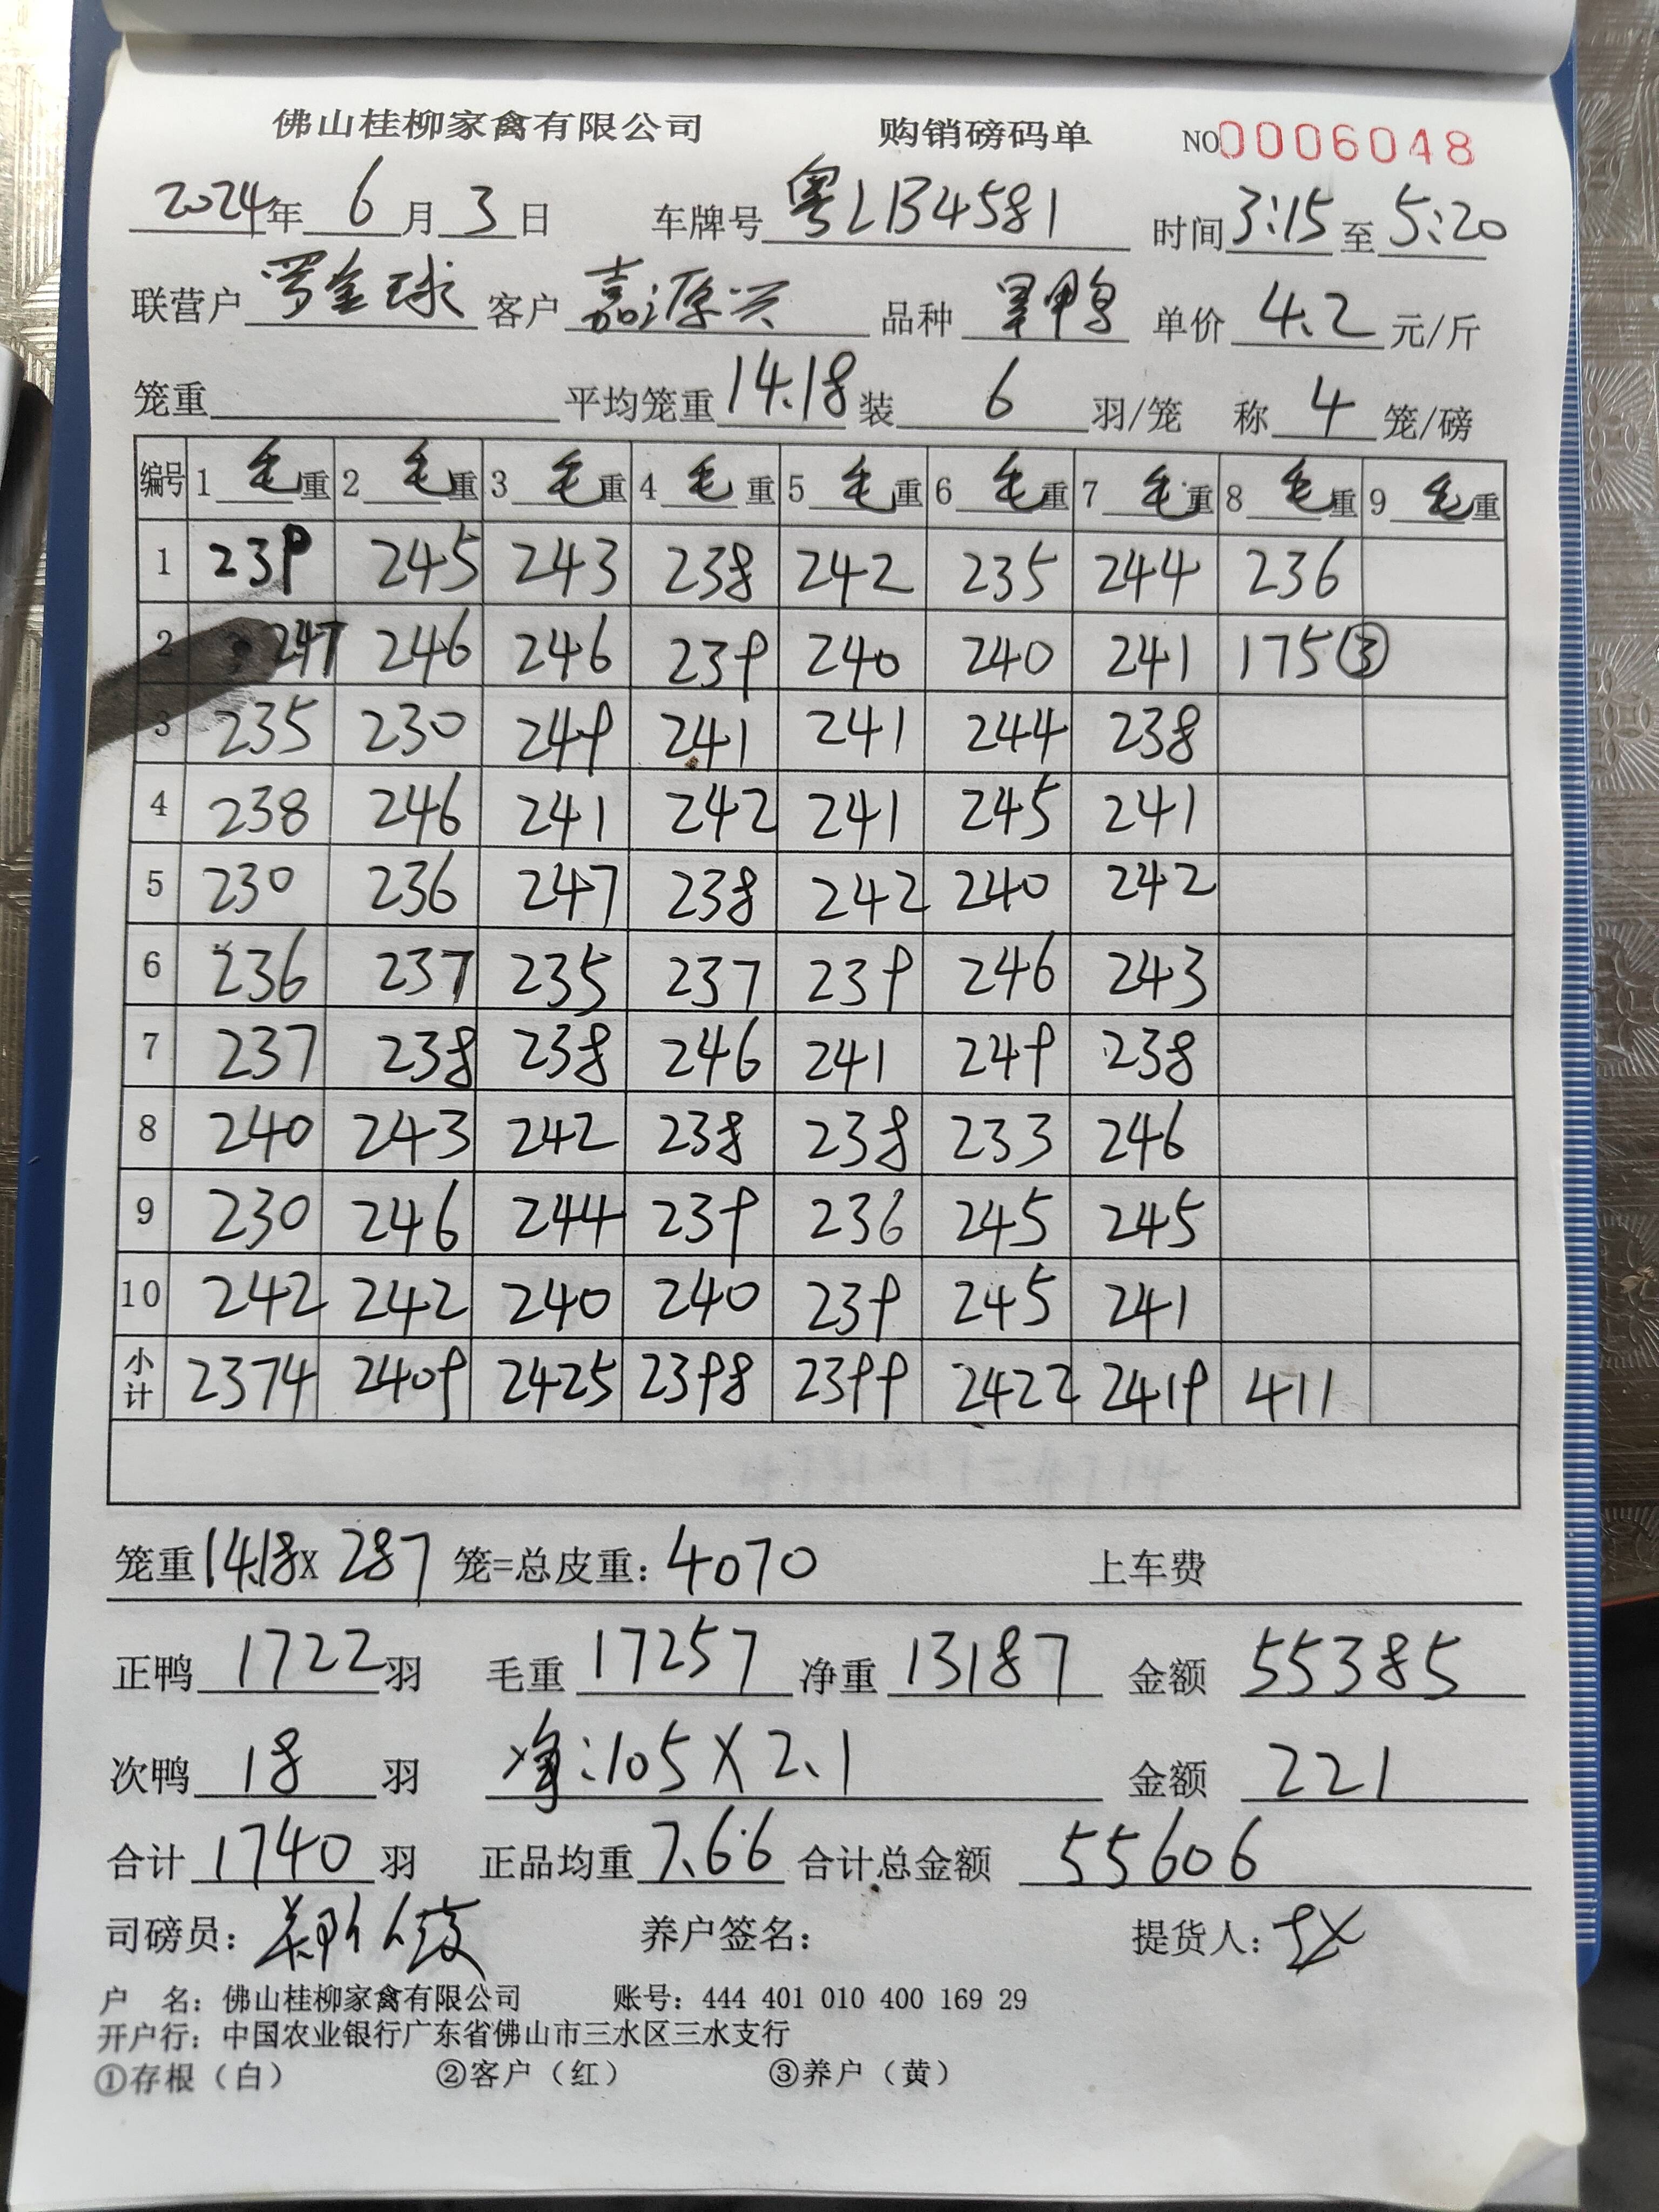 佛山桂柳家禽有限公司 购销磅码单 NO 0006048
2024年 6月 3日 车牌号 粤LB4581 时间 3:15 至 5:20
联营户 罗金球 客户 嘉源兴 品种 鸭 单价 4.2 元/斤
笼重 平均笼重 14.18 装 6 羽/笼 称 4 笼/磅
编号 1 毛重 2 毛重 3 毛重 4 毛重 5 毛重 6 毛重 7 毛重 8 毛重 9 毛重
1 239 245 243 238 242 235 244 236
2 247 246 246 239 240 240 241 175③
3 235 230 249 241 241 244 238
4 238 246 241 242 241 245 241
5 230 236 247 238 242 240 242
6 236 237 235 237 239 246 243
7 237 238 238 246 241 249 238
8 240 243 242 238 238 233 246
9 230 246 244 239 236 245 245
10 242 242 240 240 239 245 241
小计 2374 2409 2425 2398 2399 2422 2419 411
笼重 14.18 x 287 笼=总皮重: 4070 上车费
正鸭 1722 羽 毛重 17257 净重 13187 金额 55385
次鸭 18 羽 净:105X2.1 金额 221
合计 1740 羽 正品均重 7.66 合计总金额 55606
司磅员: 养户签名: 提货人:
户 名: 佛山桂柳家禽有限公司 账号: 444 401 010 400 169 29
开户行: 中国农业银行广东省佛山市三水区三水支行
①存根(白) ②客户(红) ③养户(黄)